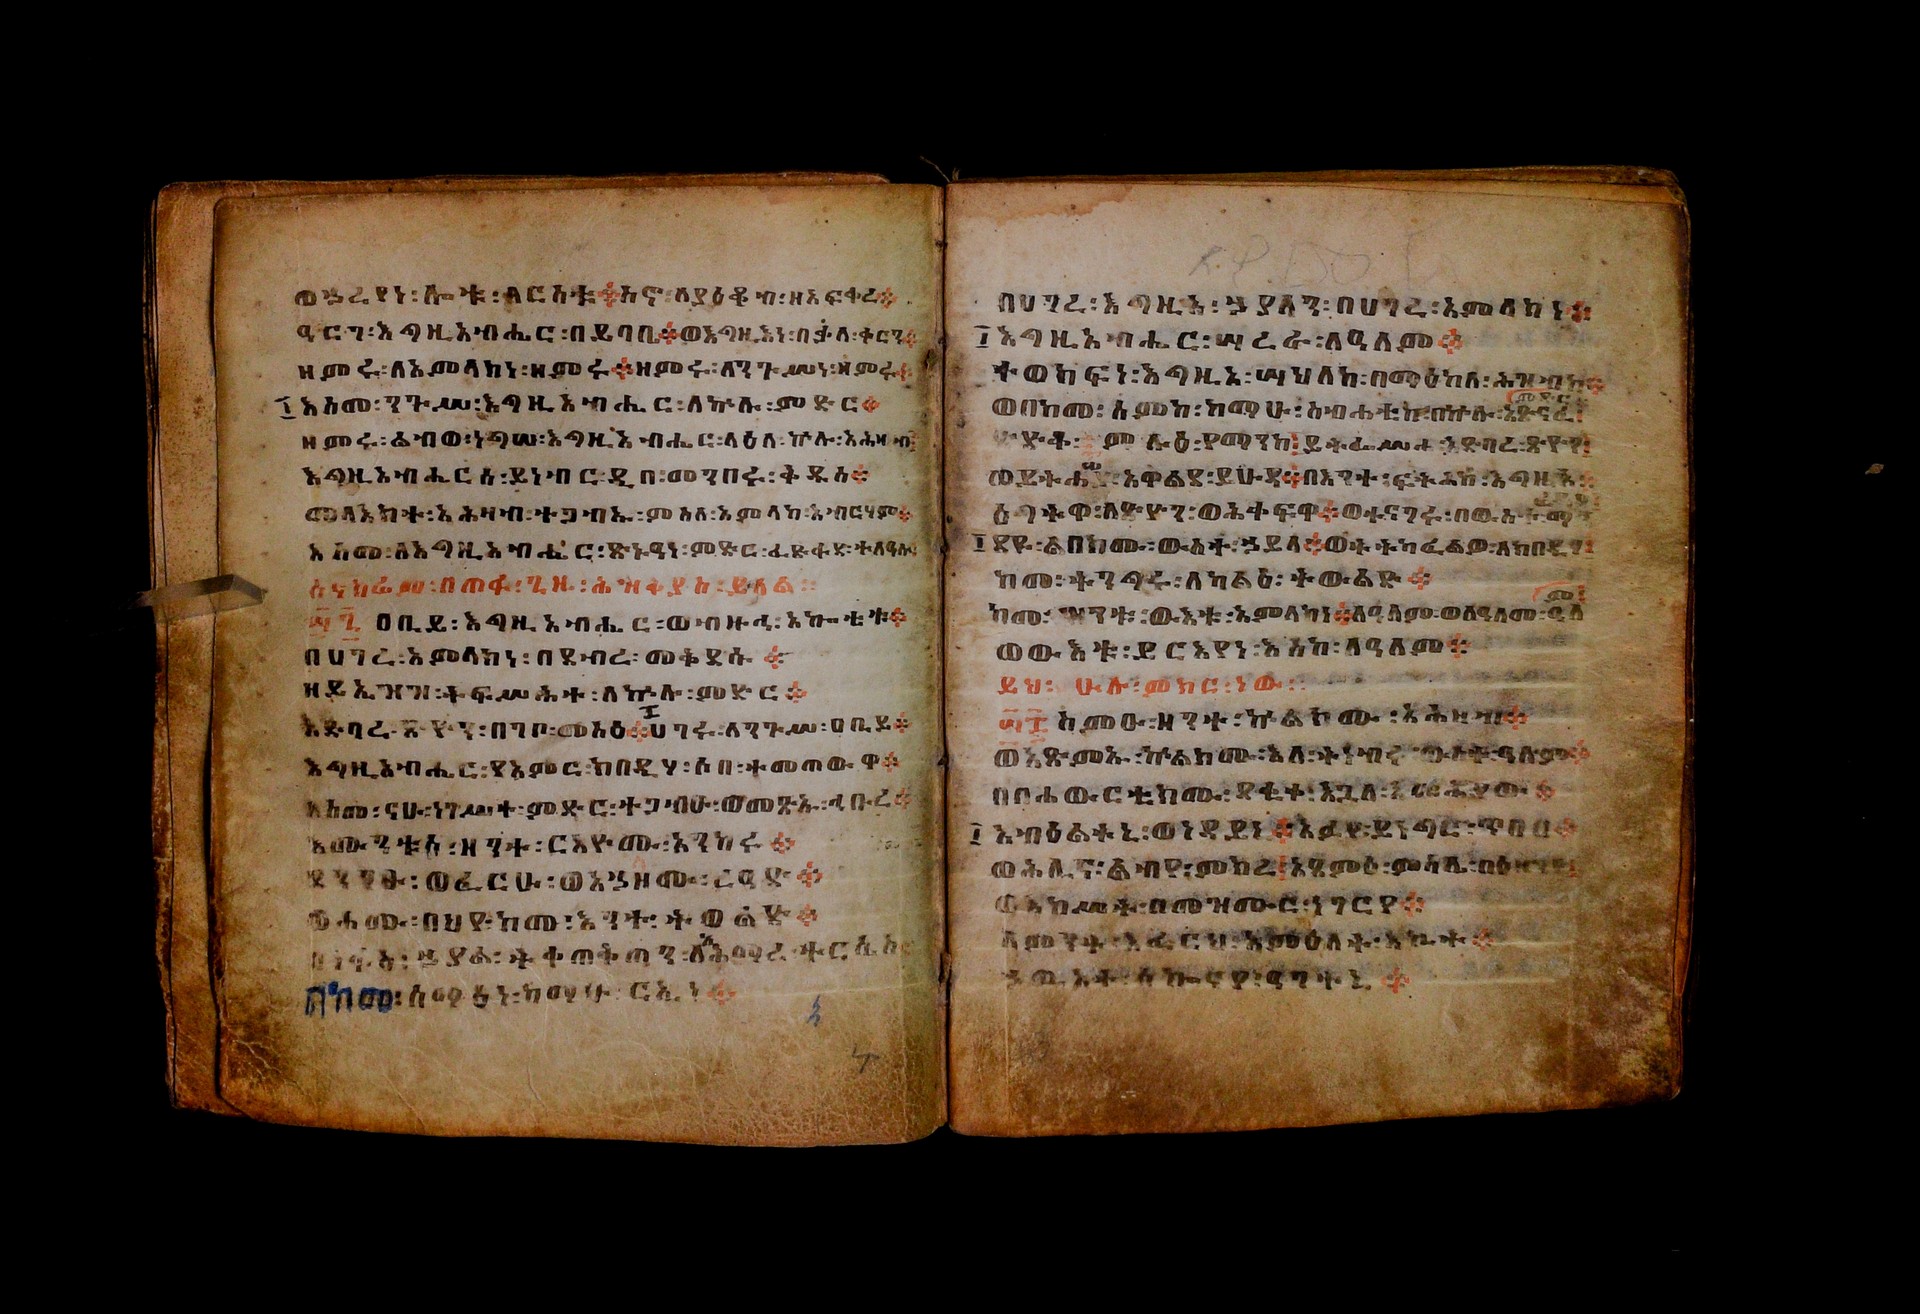 ወኀረየነ፡ ሎቱ፡ ለርስቱ። ስኖ፡ ለያዕቆብ፡ ዘአፍቀረ።
ዓርገ፡ እግዚአብሔር፡ በይባቤ። ወእግዚእነ፡ በቃለ፡ ቀርን።
ዘምሩ፡ ለአምላክነ፡ ዘምሩ። ዘምሩ፡ ለንጉሥነ፡ ዘምሩ።
እስመ፡ ንጉሥ፡ እግዚአብሔር፡ ለኵሉ፡ ምድር።
ዘምሩ፡ ልብወ፡ ነግሠ፡ እግዚአብሔር፡ ላዕለ፡ ኵሉ፡ አሕዛብ፡
እግዚአብሔርሰ፡ ይነብር፡ ዲበ፡ መንበሩ፡ ቅዱስ።
መላእክተ፡ አሕዛብ፡ ተጋብኡ፡ ምስለ፡ አምላከ፡ አብርሃም።
እስመ፡ ለእግዚአብሔር፡ ጽኑዓነ፡ ምድር፡ ፈድፋደ፡ ተለዓሉ
ስናክፌም፡ በጠፋ፡ ጊዜ፡ ሕዝቅያስ፡ ይላል።
፵፯ ዐቢይ፡ እግዚአብሔር፡ ወብዙኅ፡ አኰቴቱ።
በሀገረ፡ አምላክነ፡ በደብረ፡ መቅደሱ።
ዘይኤዝዝ፡ ትፍሥሕተ፡ ለኵሉ፡ ምድር።
አድባረ፡ ጽዮን፡ በገቦ፡ መስዕ። ሀገሩ፡ ለንጉሥ፡ ዐቢይ።
እግዚአብሔር፡ የአምር፡ ክበዲሃ፡ ሶበ፡ ተመጠውዋ።
እስመ፡ ናሁ፡ ነገሥተ፡ ምድር፡ ተጋብኡ፡ ወመጽኡ፡ ኅቡረ።
እሙንቱሰ፡ ዘንተ፡ ርእዮሙ፡ አንከሩ።
ደንገፁ፡ ወፈርሁ፡ ወአኀዞሙ፡ ረዓድ።
ወሐሙ፡ በህየ፡ ከመ፡ እንተ፡ ትወልድ።
በነፋስ፡ ኀያል፡ ትቀጠቅጦን፡ ለአሕማረ፡ ተርሴስ
በከመ፡ ሰማዕነ፡ ከማሁ፡ ርኢነ።
በሀገረ፡ እግዚአ፡ ኀያላን፡ በሀገረ፡ አምላክነ።
እግዚአብሔር፡ ሣረራ፡ ለዓለም።
ተወከፍነ፡ እግዚአ፡ ሣህለከ፡ በማዕከለ፡ ሕዝብከ።
ወበከመ፡ ስምከ፡ ከማሁ፡ ስብሐቲከ፡ በኵሉ፡ አጽናፈ፡ ምድር፡
ጽድቀ፡ ምሉዕ፡ የማንከ፡ ይትፌሣሕ፡ አድባረ፡ ጽዮን፡
ወይትሐሠያ፡ አዋልደ፡ ይሁዳ። በእንተ፡ ፍትሕከ፡ እግዚኦ።
ዕግትዋ፡ ለጽዮን፡ ወሕቀፍዋ። ወተናገሩ፡ በውስተ፡
ደዩ፡ ልበክሙ፡ ውስተ፡ ኀይላ። ወትትካፈልዎ፡ ለክበዲሃ፡
ከመ፡ ትንግሩ፡ ለካልዕ፡ ትውልድ።
ከመ፡ ዝንቱ፡ ውእቱ፡ አምላክነ። ለዓለም፡ ወለዓለመ፡ ዓለም፡
ወውእቱ፡ ይርእየነ፡ እስከ፡ ለዓለም።
ይህ፡ ሁሉ፡ ምክር፡ ነው።
፵፰ ስምዑ፡ ዘንተ፡ ኵልክሙ፡ አሕዛብ።
ወአጽምኡ፡ ኵልክሙ፡ እለ፡ ትነብሩ፡ ውስተ፡ ዓለም።
በበሐውርቲክሙ፡ ደቂቀ፡ እጓለ፡ እመሕያው።
አብዕልትኒ፡ ወነዳይኒ። አፉየ፡ ይነግር፡ ጥበበ።
ወሕሊና፡ ልብየ፡ ምክረ። አፀምዕ፡ ምሳሌ፡ በዕዝንየ፡
ወእከሥት፡ በመዝሙር፡ ነገርየ።
ለምንት፡ እፈርህ፡ እምዕለት፡ እኪት።
ሰኰናየ፡ ዓገተኒ።